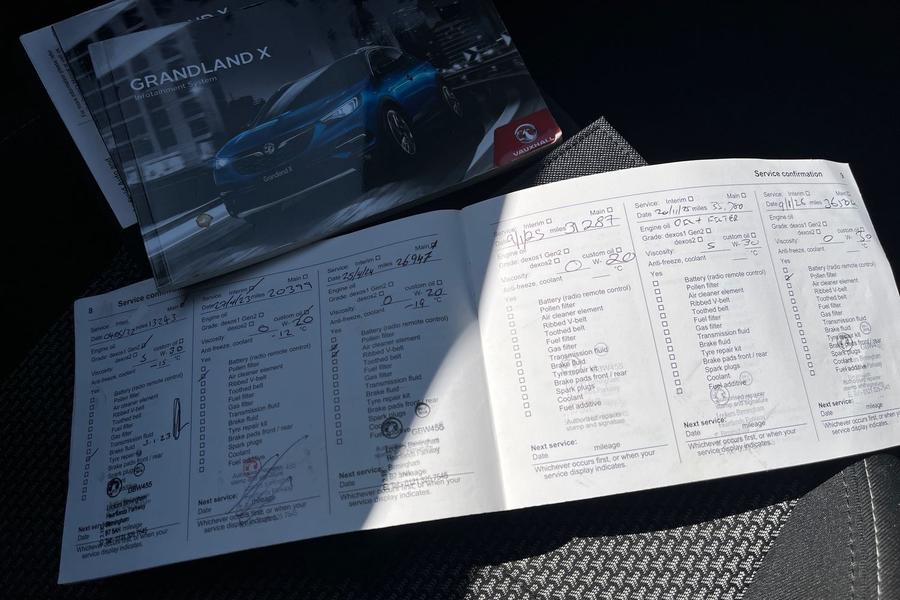 GRANDLAND X
Infotainment System
Grandland X
VAUXHALL
8
Service:
Date miles 13243
Engine oil
Grade: dexos1 Gen2 custom oil
dexos2
Viscosity: 5 W- 30
Anti-freeze, coolant -15 °C
Yes
Battery (radio remote control)
Pollen filter
Air cleaner element
Ribbed V-belt
Toothed belt
Fuel filter
Gas filter
Transmission fluid
Brake fluid
Tyre repair kit
Brake pads front / rear
Spark plugs
DBW455
Lookers Birmingham
Heartlands Parkway
Birmingham
Next service:
Date mileage
Whichever occurs first, or when your
service display indicates.
Main
Date miles 20399
Engine oil
Grade: dexos1 Gen2 custom oil
dexos2
Viscosity: 0 W- 20
Anti-freeze, coolant -12 °C
Yes
Battery (radio remote control)
Pollen filter
Air cleaner element
Ribbed V-belt
Toothed belt
Fuel filter
Gas filter
Transmission fluid
Brake fluid
Tyre repair kit
Brake pads front / rear
Spark plugs
Coolant
Next service:
Date mileage
Whichever occurs first, or when your
service display indicates.
Service: Interim Main
Date 25/4/24 miles 26947
Engine oil
Grade: dexos1 Gen2 custom oil
dexos2
Viscosity: 0 W- 20
Anti-freeze, coolant -19 °C
Yes
Battery (radio remote control)
Pollen filter
Air cleaner element
Ribbed V-belt
Toothed belt
Fuel filter
Gas filter
Transmission fluid
Brake fluid
Tyre repair kit
Brake pads front / rear
Spark plugs
Coolant
DBW455
Lookers Birmingham
Next service:
Date
Whichever occurs first, or when your
service display indicates.
Service confirmation 9
Service: Interim Main
Date 9/1/25 miles 31287
Engine oil
Grade: dexos1 Gen2 custom oil
dexos2
Viscosity: 0 W- 20
Anti-freeze, coolant °C
Yes
Battery (radio remote control)
Pollen filter
Air cleaner element
Ribbed V-belt
Toothed belt
Fuel filter
Gas filter
Transmission fluid
Brake fluid
Tyre repair kit
Brake pads front / rear
Spark plugs
Coolant
Fuel additive
Authorised repairer
stamp and signature
Next service:
Date mileage
Whichever occurs first, or when your
service display indicates.
Service: Interim Main
Date miles
Engine oil OIL + FILTER
Grade: dexos1 Gen2 custom oil
dexos2
Viscosity: 5 W- 30
Anti-freeze, coolant °C
Yes
Battery (radio remote control)
Pollen filter
Air cleaner element
Ribbed V-belt
Toothed belt
Fuel filter
Gas filter
Transmission fluid
Brake fluid
Tyre repair kit
Brake pads front / rear
Spark plugs
Coolant
Fuel additive
Authorised repairer
stamp and signature
Next service:
Date mileage
Whichever occurs first, or when your
service display indicates.
Service: Interim Main
Date 9/1/26 miles
Engine oil
Grade: dexos1 Gen2 custom oil
dexos2
Viscosity: 0 W- 30
Anti-freeze, coolant °C
Yes
Battery (radio remote control)
Pollen filter
Air cleaner element
Ribbed V-belt
Toothed belt
Fuel filter
Gas filter
Transmission fluid
Brake fluid
Tyre repair kit
Brake pads front / rear
Spark plugs
Coolant
Fuel additive
Next service:
Date mileage
Whichever occurs first, or when your
service display indicates.